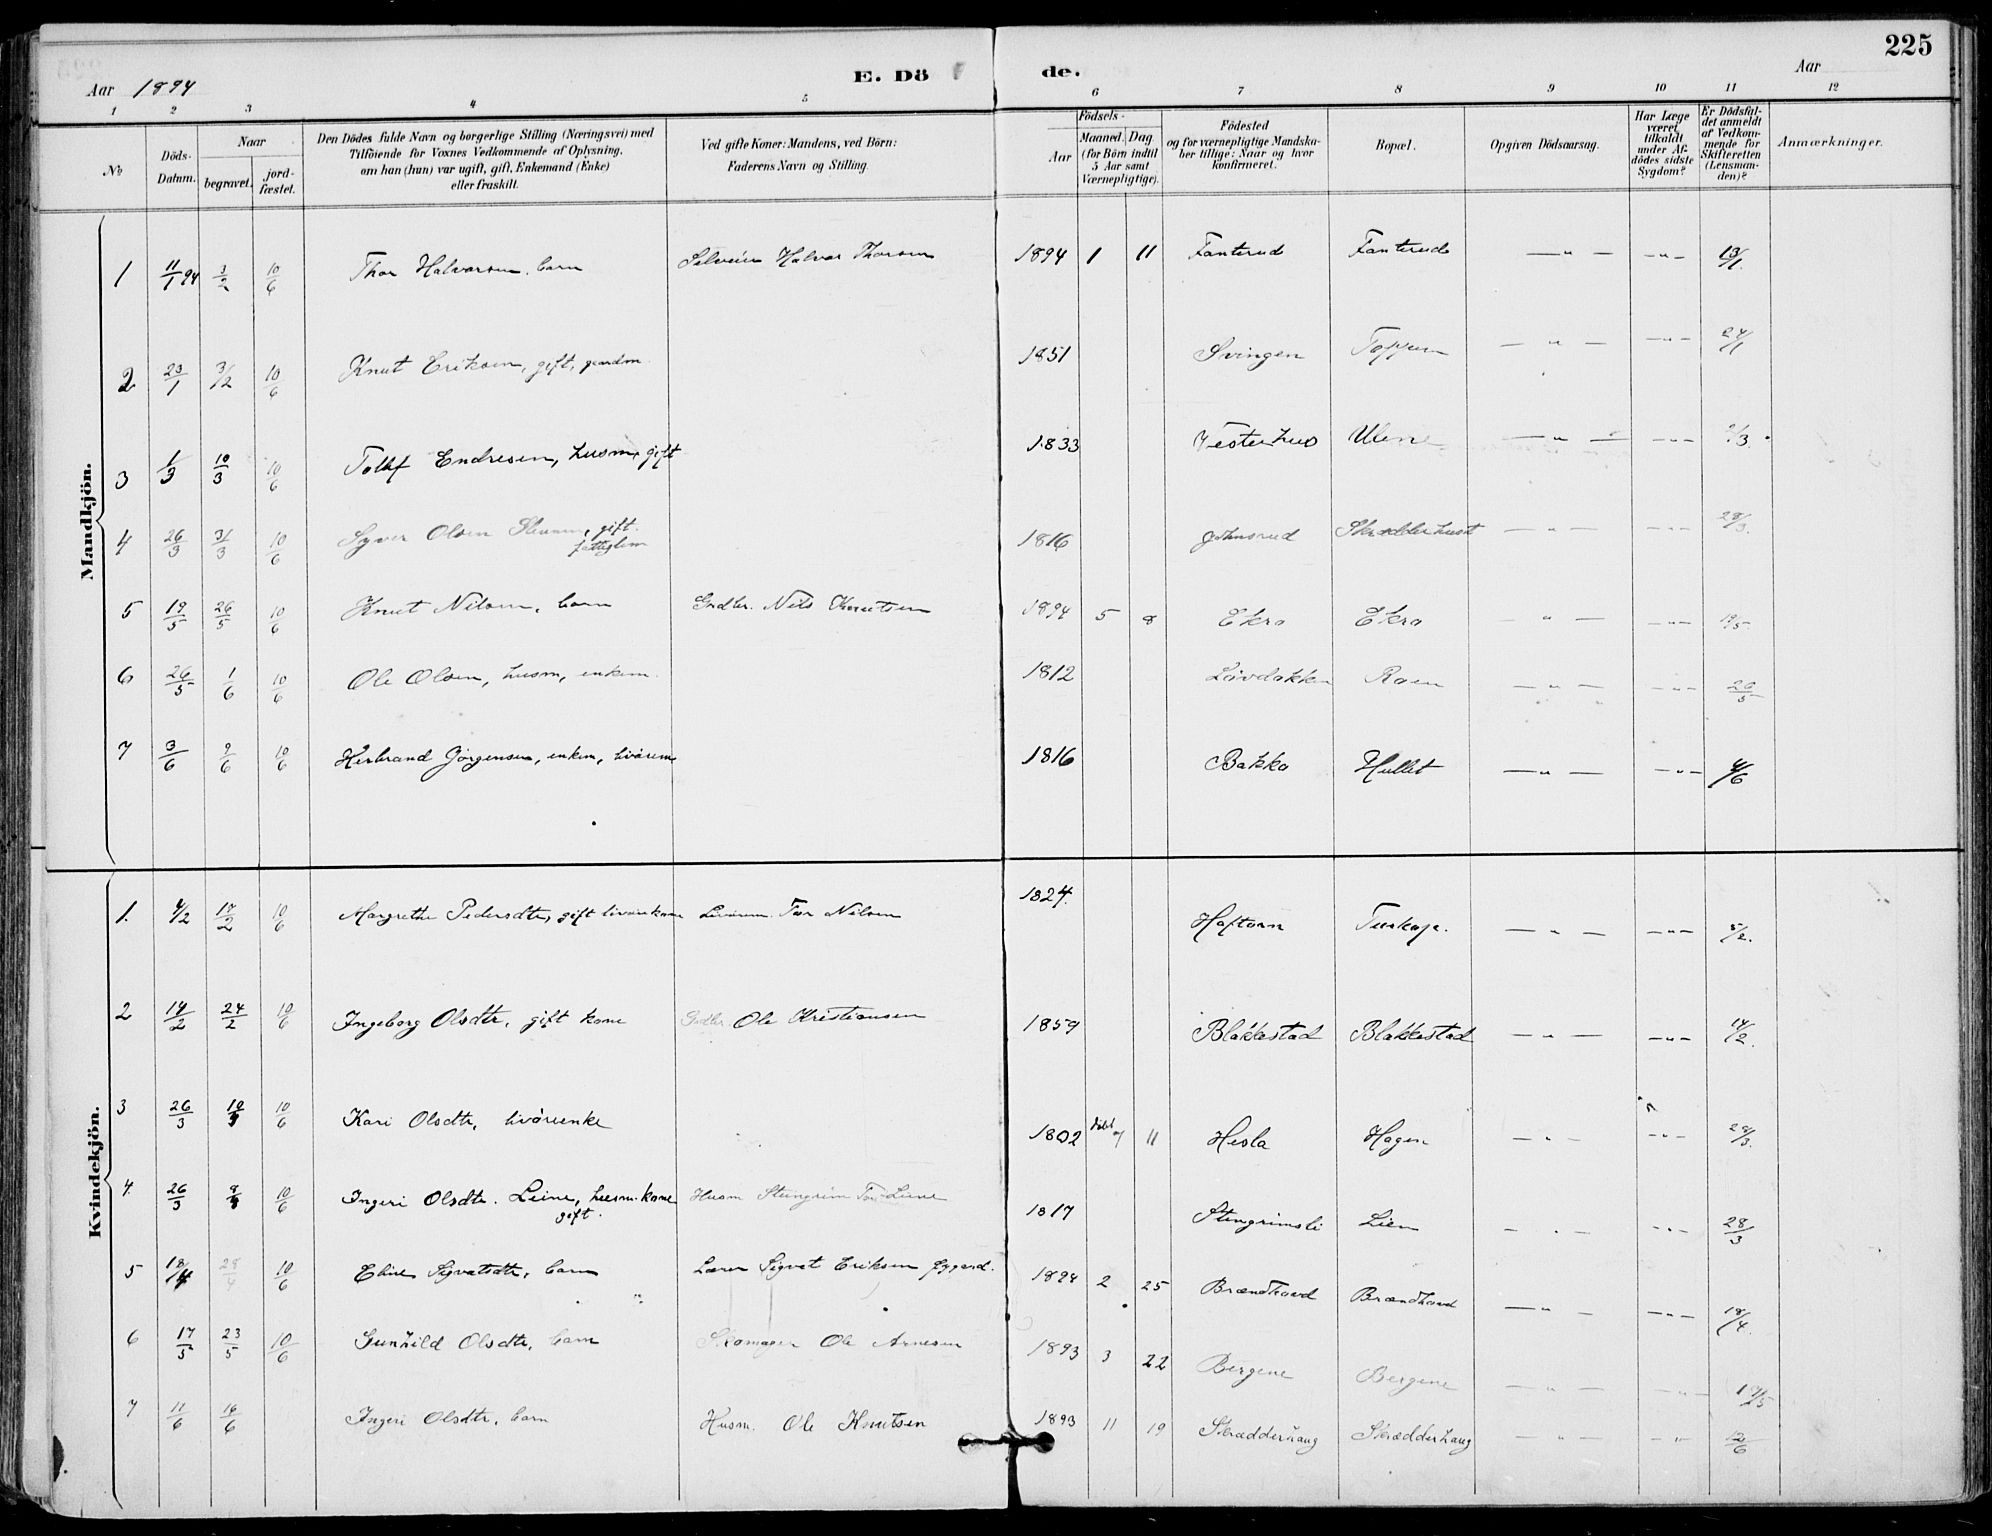 225
Aar 1894 E. Dö de. Aar
1 2 3 4 5 6 7 8 9 10 11 12
№ Döds-Datum. Naar begravet. jord-fæstet. Den Dödes fulde Navn og borgerlige Stilling (Næringsvei) med Tilföiende for Voxnes Vedkommende af Oplysning, om han (hun) var ugift, gift, Enkemand (Enke) eller fraskilt. Ved gifte Koner: Mandens, ved Börn: Faderens Navn og Stilling. Födsels- Aar Maaned. Dag (for Börn indtil 5 Aar samt Værnepligtige). Födested og for værnepligtige Mandska-ber tillige: Naar og hvor konfirmeret. Bopæl. Opgiven Dödsaarsag. Har Læge været tilkaldt under Af-dödes sidste Sygdom? Er Dödsfal-det anmeldt af Vedkom-mende for Skifteretten (Lensman-den)? Anmærkninger.
Mandkjön.
1 11/1 94 3/2 10/6 Thor Halvorsen, barn Halvor Thorsen 1894 1 11 Fanterud Fanterud — " — - " - 13/1.
2 23/1 3/2 10/6 Knut Eriksen, gift, gaardm. 1851 Svingen — " — - " - 24/1
3 1/3 10/3 10/6 Tollef Endresen, husm, gift 1833 — " — - " - /3.
4 26/3 31/3 10/6 Syver Olsen gift. 1816 — " — - " - 28/3.
5 19/5 26/5 10/6 Knut Nilsen, barn Gndbr. Nils Knutsen 1894 5 8 Ekra Ekra — " — - " - 19/5
6 26/5 1/6 10/6 Ole Olsen, husm, enkem. 1812 Lövdokken Roen — " — - " - 26/5
7 3/6 9/6 10/6 Herbrand Jörgensen, enkem, livörem 1816 Bakko Hullet — " — - " - 4/6
Kvindekjön.
1. 4/2 17/2 10/6 Margrethe Pedersdtr, gift livörekone Livörem. Tor Nilsen 1824. Haftorn — " — - " - 5/2.
2 14/2 24/2 10/6 Ingeborg Olsdtr, gift kone Gndbr. Ole Kristiansen 1859 Blakkestad Blakkestad — " — - " - 14/2.
3 26/3 10/6 Kari Olsdtr, livörenke 1802 11 Hesla Hagen - " - - " - 28/3.
4. 26/3 10/6 Ingeri Olsdtr. Leine, husm. kone gift. Husm Stengrim 1817 Stengrimsli Lien - . - - . - 28/3
5 18/4 28/4 10/6 Sigvatsdtr, barn Lærer Sigvat Eriksen 1894 2 25 Brændhaud Brændhaud — " — - " - 18/4.
6 17/5 23/5 10/6 Gunhild Olsdtr, barn Skomager Ole Arnesen 1893 3 22 Bergene Bergene — " — - " - 19/5
7 11/6 16/6 Ingeri Olsdtr, barn Husm. Ole Knutsen 1893 11 19 Skrædderhaug Skrædderhaug — " — - " - 12/6